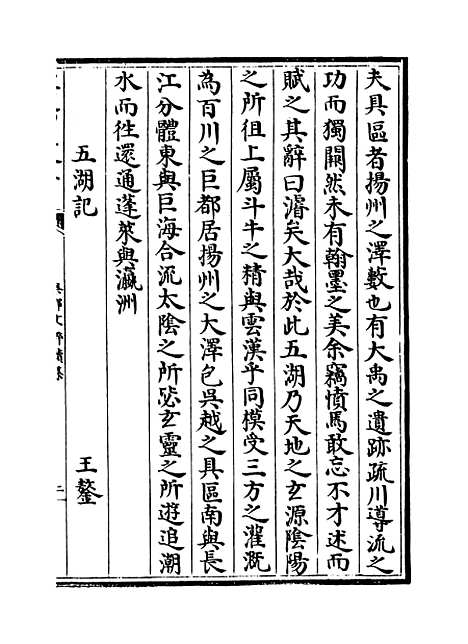 夫具區者揚州之澤藪也有大禹之遺跡疏川導流之
功而獨闕然未有翰墨之美余竊憤焉敢忘不才述而
賦之其辭曰濬矣大哉於此五湖乃天地之玄源陰陽
之所徂上屬斗牛之精與雲漢乎同模受三方之灌溉
為百川之巨都居揚州之大澤包吳越之具區南與長
江分體東與巨海合流太陰之所毖玄靈之所遊追潮
水而徃還通蓬萊與瀛洲
五湖記 王鏊
吳都文粹續集 二